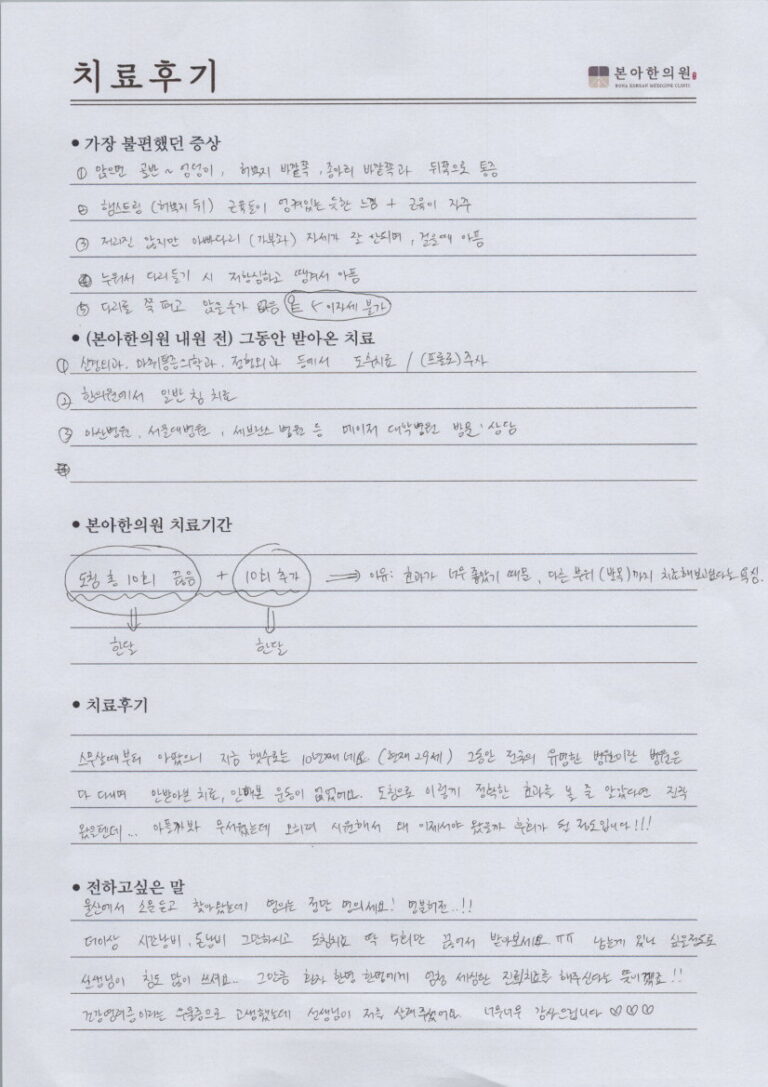 치료후기
본아한의원
BONA KOREAN MEDICINE CLINIC
• 가장 불편했던 증상
① 앉으면 골반 ~ 엉덩이, 허벅지 바깥쪽, 종아리 바깥쪽과 뒤쪽으로 통증
② 햄스트링 (허벅지 뒤) 근육들이 엉켜있는 듯한 느낌 + 근육이 자주
③ 저리진 않지만 아빠다리 (가부좌) 자세가 잘 안되며, 걸을때 아픔
④ 누워서 다리들기 시 저항심하고 땡겨서 아픔
⑤ 다리를 쭉 펴고 앉을수가 없음 이자세 불가
• (본아한의원 내원 전) 그동안 받아온 치료
① 신경외과, 마취통증의학과, 정형외과 등에서 도수치료 / (프롤로)주사
② 한의원에서 일반 침 치료
③ 아산병원, 서울대병원, 세브란스 병원 등 메이저 대학병원 방문·상담
• 본아한의원 치료기간
도침 총 10회 끊음 + 10회 추가 ⇒ 이유: 효과가 너무 좋았기 때문, 다른 부위 (반목)까지 치료해보고싶다는 욕심.
한달 한달
• 치료후기
스무살때부터 아팠으니 지금 햇수로는 10년째네요 (현재 29세) 그동안 전국의 유명한 병원이란 병원은
다 다니며 안받아본 치료, 안해본 운동이 없었어요. 도침으로 이렇게 정확한 효과를 볼 줄 알았다면 진즉
왔을텐데... 아플까봐 무서웠는데 오히려 시원해서 왜 이제서야 왔을까 후회가 될 정도입니다!!!
• 전하고싶은 말
울산에서 소문듣고 찾아왔는데 명의는 정말 명의세요! 명불허전..!!
더이상 시간낭비, 돈낭비 그만하시고 도침치료 딱 5회만 끊어서 받아보세요 ㅠㅠ 남는게 있나 싶을정도로
선생님이 침도 많이 쓰세요.. 그만큼 환자 한명 한명에게 엄청 세심한 진료치료를 해주신다는 뜻이겠죠!!
건강염려증이라는 우울증으로 고생했는데 선생님이 저를 살려주셨어요. 너무너무 감사드립니다 ♡♡♡